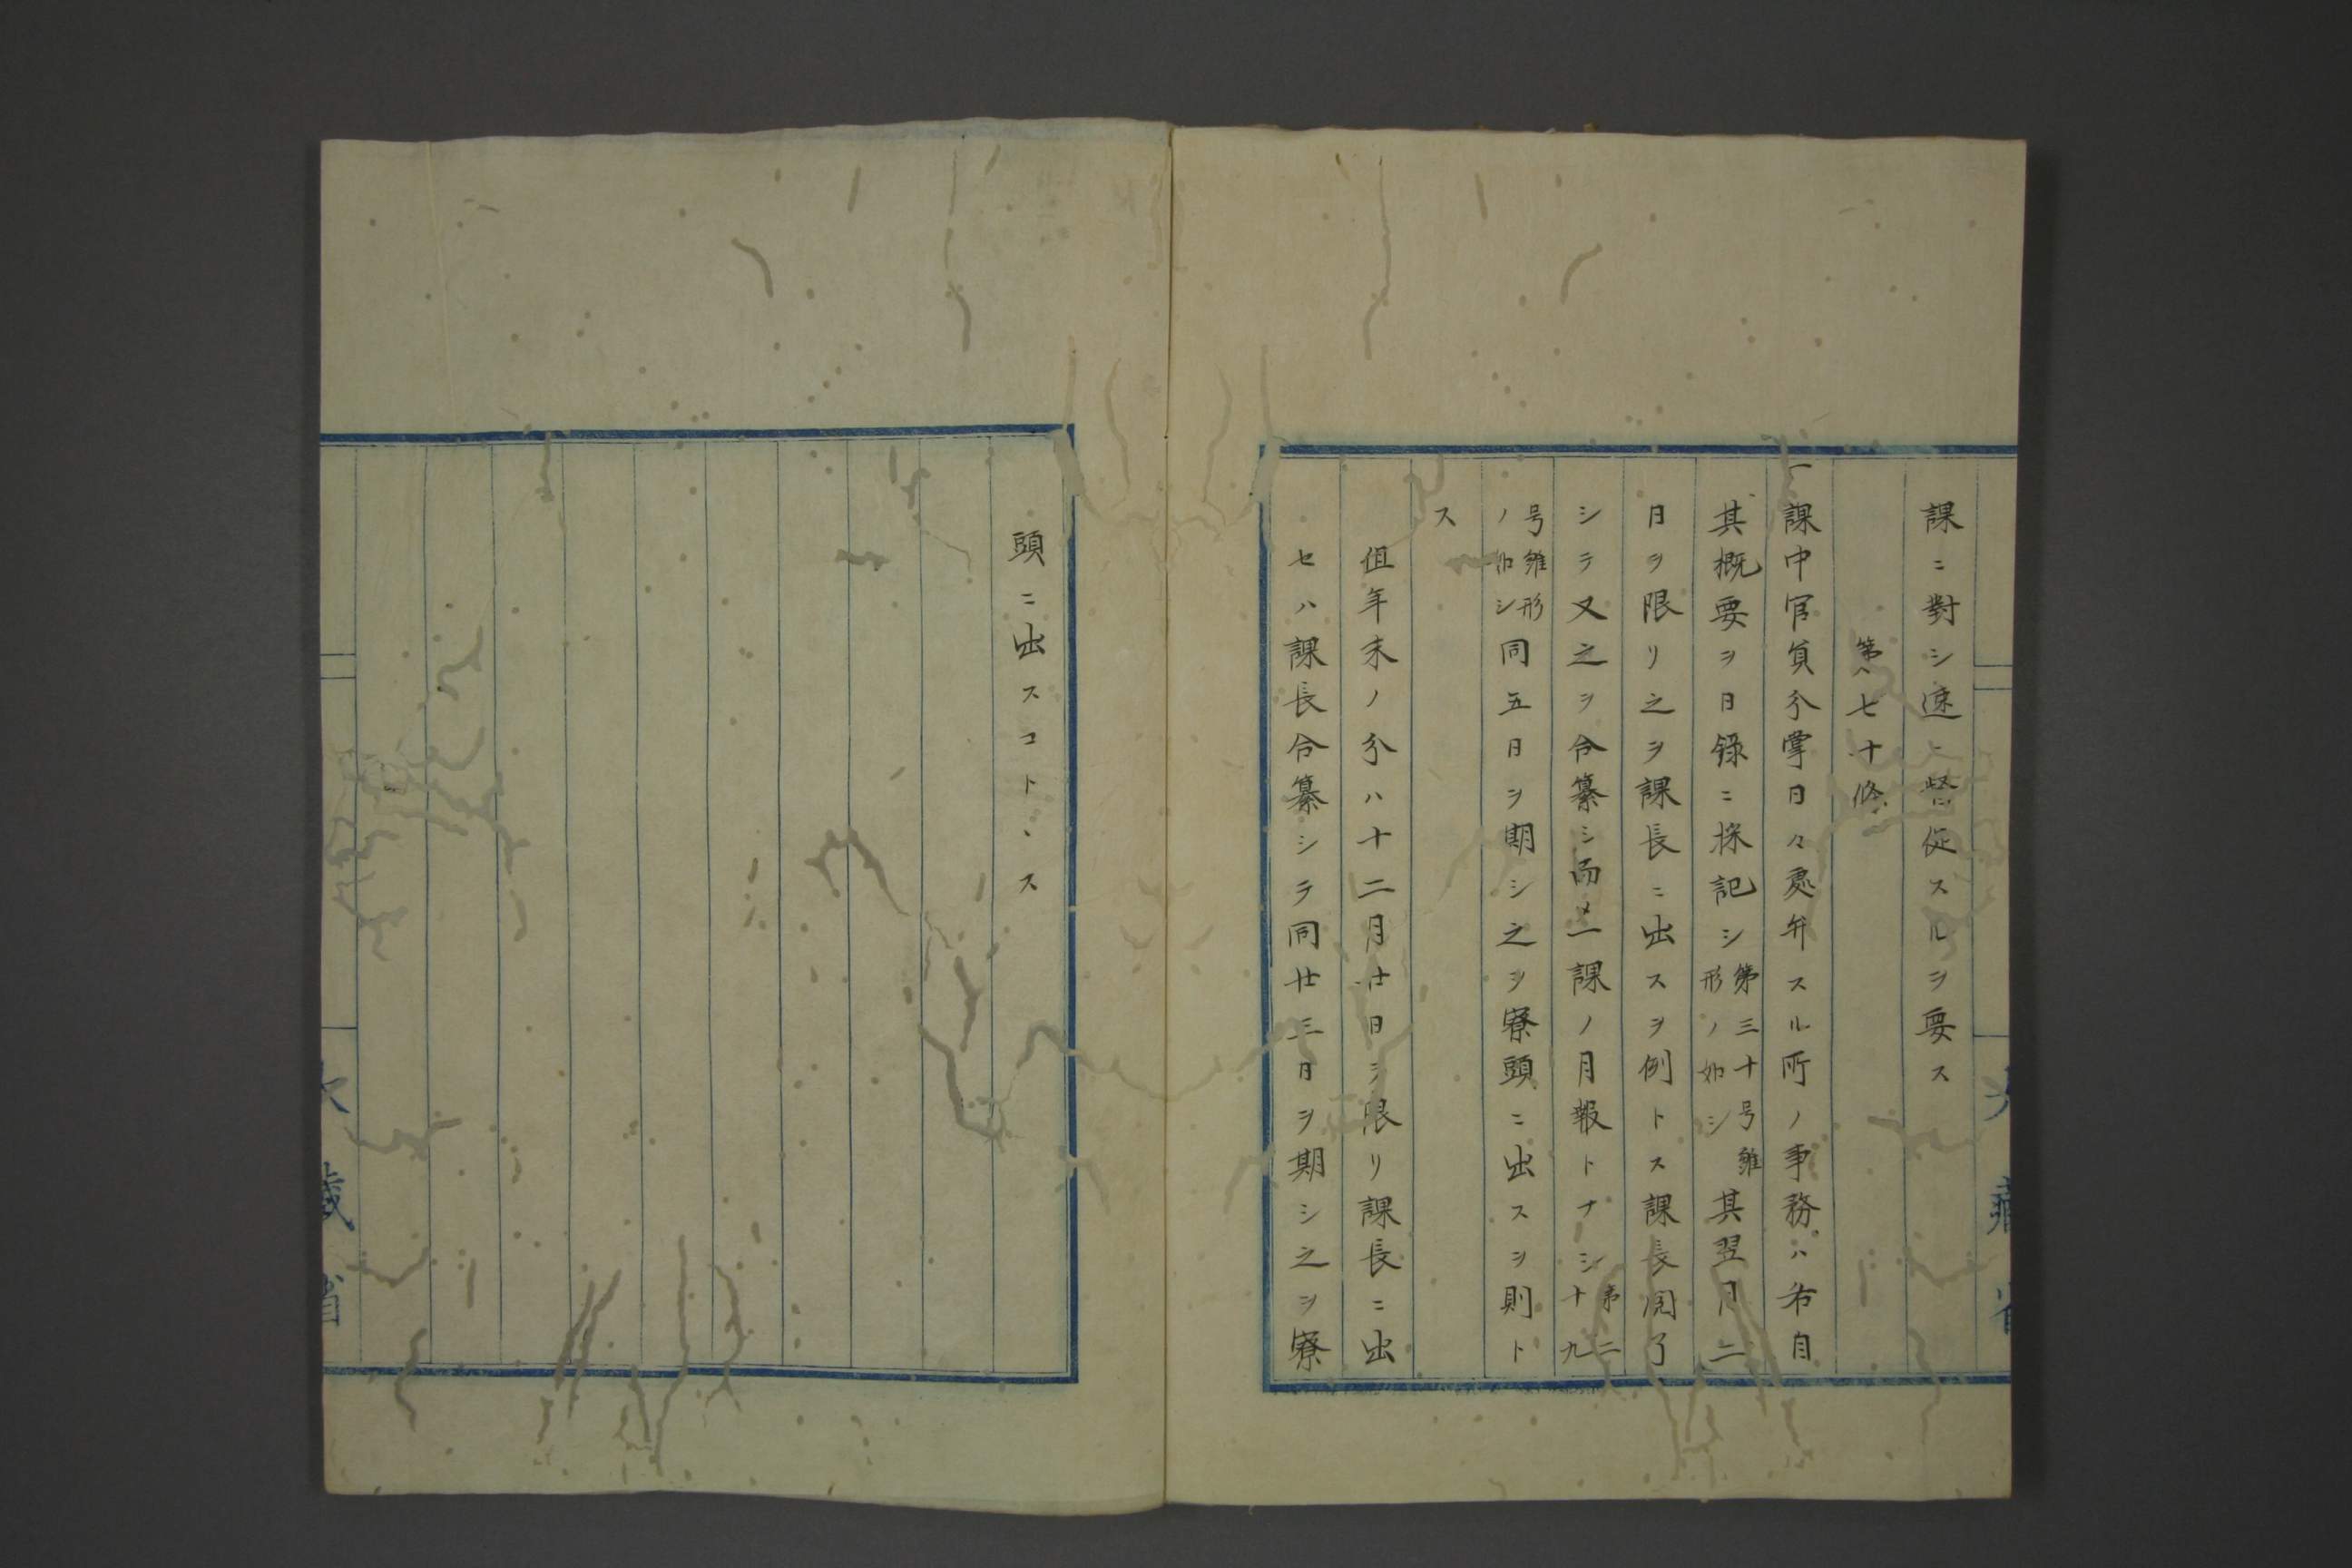 課ニ對シ速ニ督促スルヲ要ス
第七十條
一課中官員分掌日々處弁スル所ノ事務ハ各自
其概要ヲ日録ニ採記シ第三十号雛形ノ如シ其翌月二
日ヲ限リ之ヲ課長ニ出スヲ例トス課長閲了
シテ又之ヲ合纂シ而メ一課ノ月報トナシ第二十九
号雛形ノ如シ同五日ヲ期シ之ヲ寮頭ニ出スヲ則ト
ス
但年末ノ分ハ十二月廿日ヲ限リ課長ニ出
セハ課長合纂シテ同廿三日ヲ期シ之ヲ寮
頭ニ出スコトヽス
大藏省
大藏省